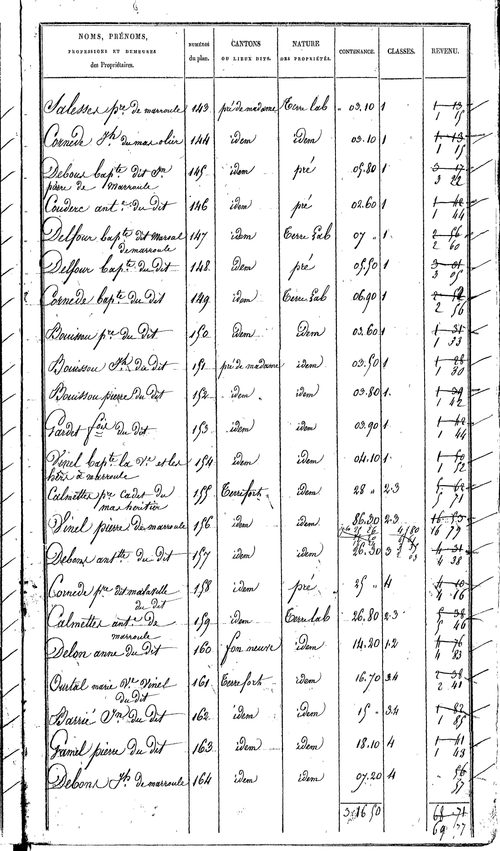 NOMS, PRÉNOMS, PROFESSIONS ET DEMEURES des Propriétaires. NUMÉROS du plan. CANTONS OU LIEUX DITS. NATURE DES PROPRIÉTÉS. CONTENANCE. CLASSES. REVENU.
Salesses pre de marroule 143 pré de madame Terre lab " 03.10 1 1 13
1 15
Cornede Jh du mas olier 144 idem idem 03.10 1 1 13
1 15
Debons bapte dit Jn 145 idem pré 05.80 1 3 17
pierre de Marroule 3 22
Couderc ant. du dit 146 idem pré 02.60 1 1 42
1 44
Delfour bapte dit Maroul 147 idem Terre Lab 07 " 1 2 56
de marroule 2 60
Delfour bapte du dit 148 idem pré 05.50 1 3 01
3 05
Cornede bapte du dit 149 idem Terre Lab 06.90 1 2 52
2 56
Bouissou pre du dit 150 idem idem 03.60 1 1 31
1 33
Bouissou Jh du dit 151 pré de madame idem 03.50 1 1 28
1 30
Bouissou pierre du dit 152 idem idem 03.80 1 1 39
1 42
Gardet du dit 153 idem idem 03.90 1 1 42
1 44
Vinel bapte la Ve et les 154 idem idem 04.10 1 1 50
hers à marroule 1 52
Calmettes pre cadet du 155 Terrefort idem 28 " 2.3 5 62
mas heritier 5 71
Vinel pierre de marroule 156 idem idem 86.30 2.3 16 53
16 79
Debons antte du dit 157 idem idem 26.30 3 4 31
4 38
Cornede pre dit matavelle 158 idem pré 25 " 4 4 10
du dit 4 16
Calmettes ant. de 159 idem Terre lab 26.80 2.3 5 38
marroule 5 46
Delon anne du dit 160 fon neuve idem 14.20 1.2 4 76
4 83
Ourtal marie Ve Vinel 161 Terrefort idem 16.70 3.4 2 38
du dit 2 41
Barrié Jn du dit 162 idem idem 15 " 3.4 1 82
1 85
Gamel pierre du dit 163 idem idem 18.10 4 1 41
1 43
Debons Jh de marroule 164 idem idem 07.20 4 56
57
3.16 50 68 71
69 77